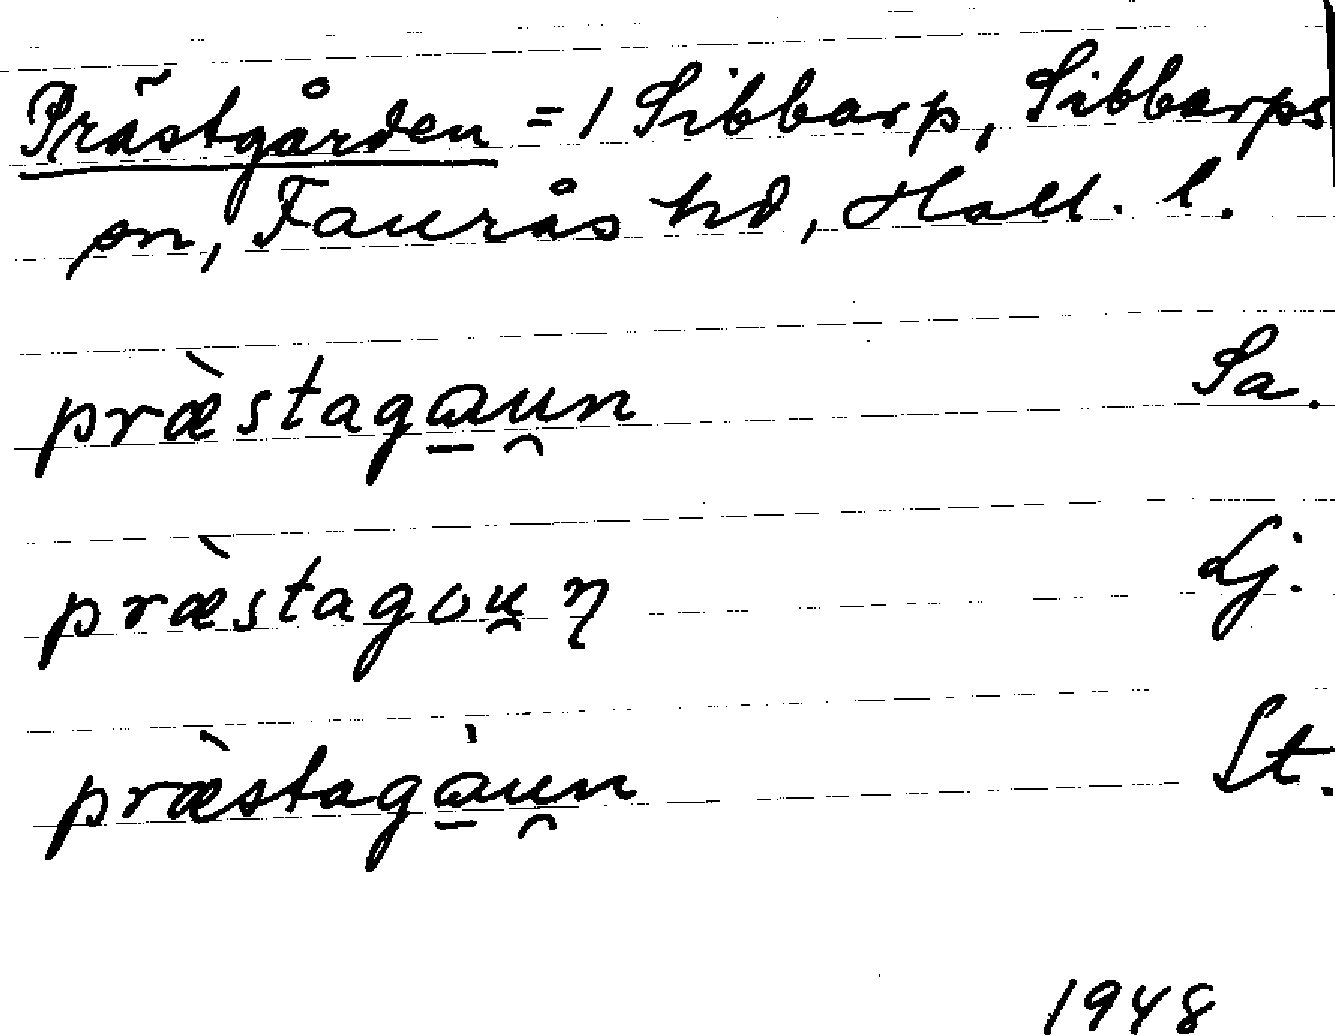 Prästgården = 1 Sibbarp, Sibbarps
sn, Faurås hd, Hall. l.
præ̀staga̱u̯n Sa.
præ̀stagou̯ŋ Lj.
præ̀stagà̱u̯n St.
1948